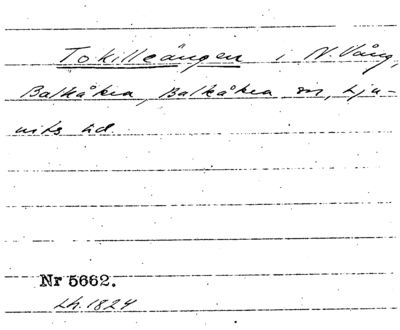 Tokilleängen i N. Vång,
Balkåkra, Balkåkra sn, Lju-
nits hd.
Nr 5662.
Lh. 1824